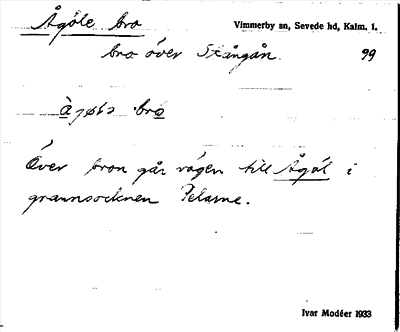 Ågöle bro
Vimmerby sn, Sevede hd, Kalm. l.
bro över Stångån.
99
bro
Över bron går vägen till Ågöl i
grannsocknen Pelarne.
Ivar Modéer 1933